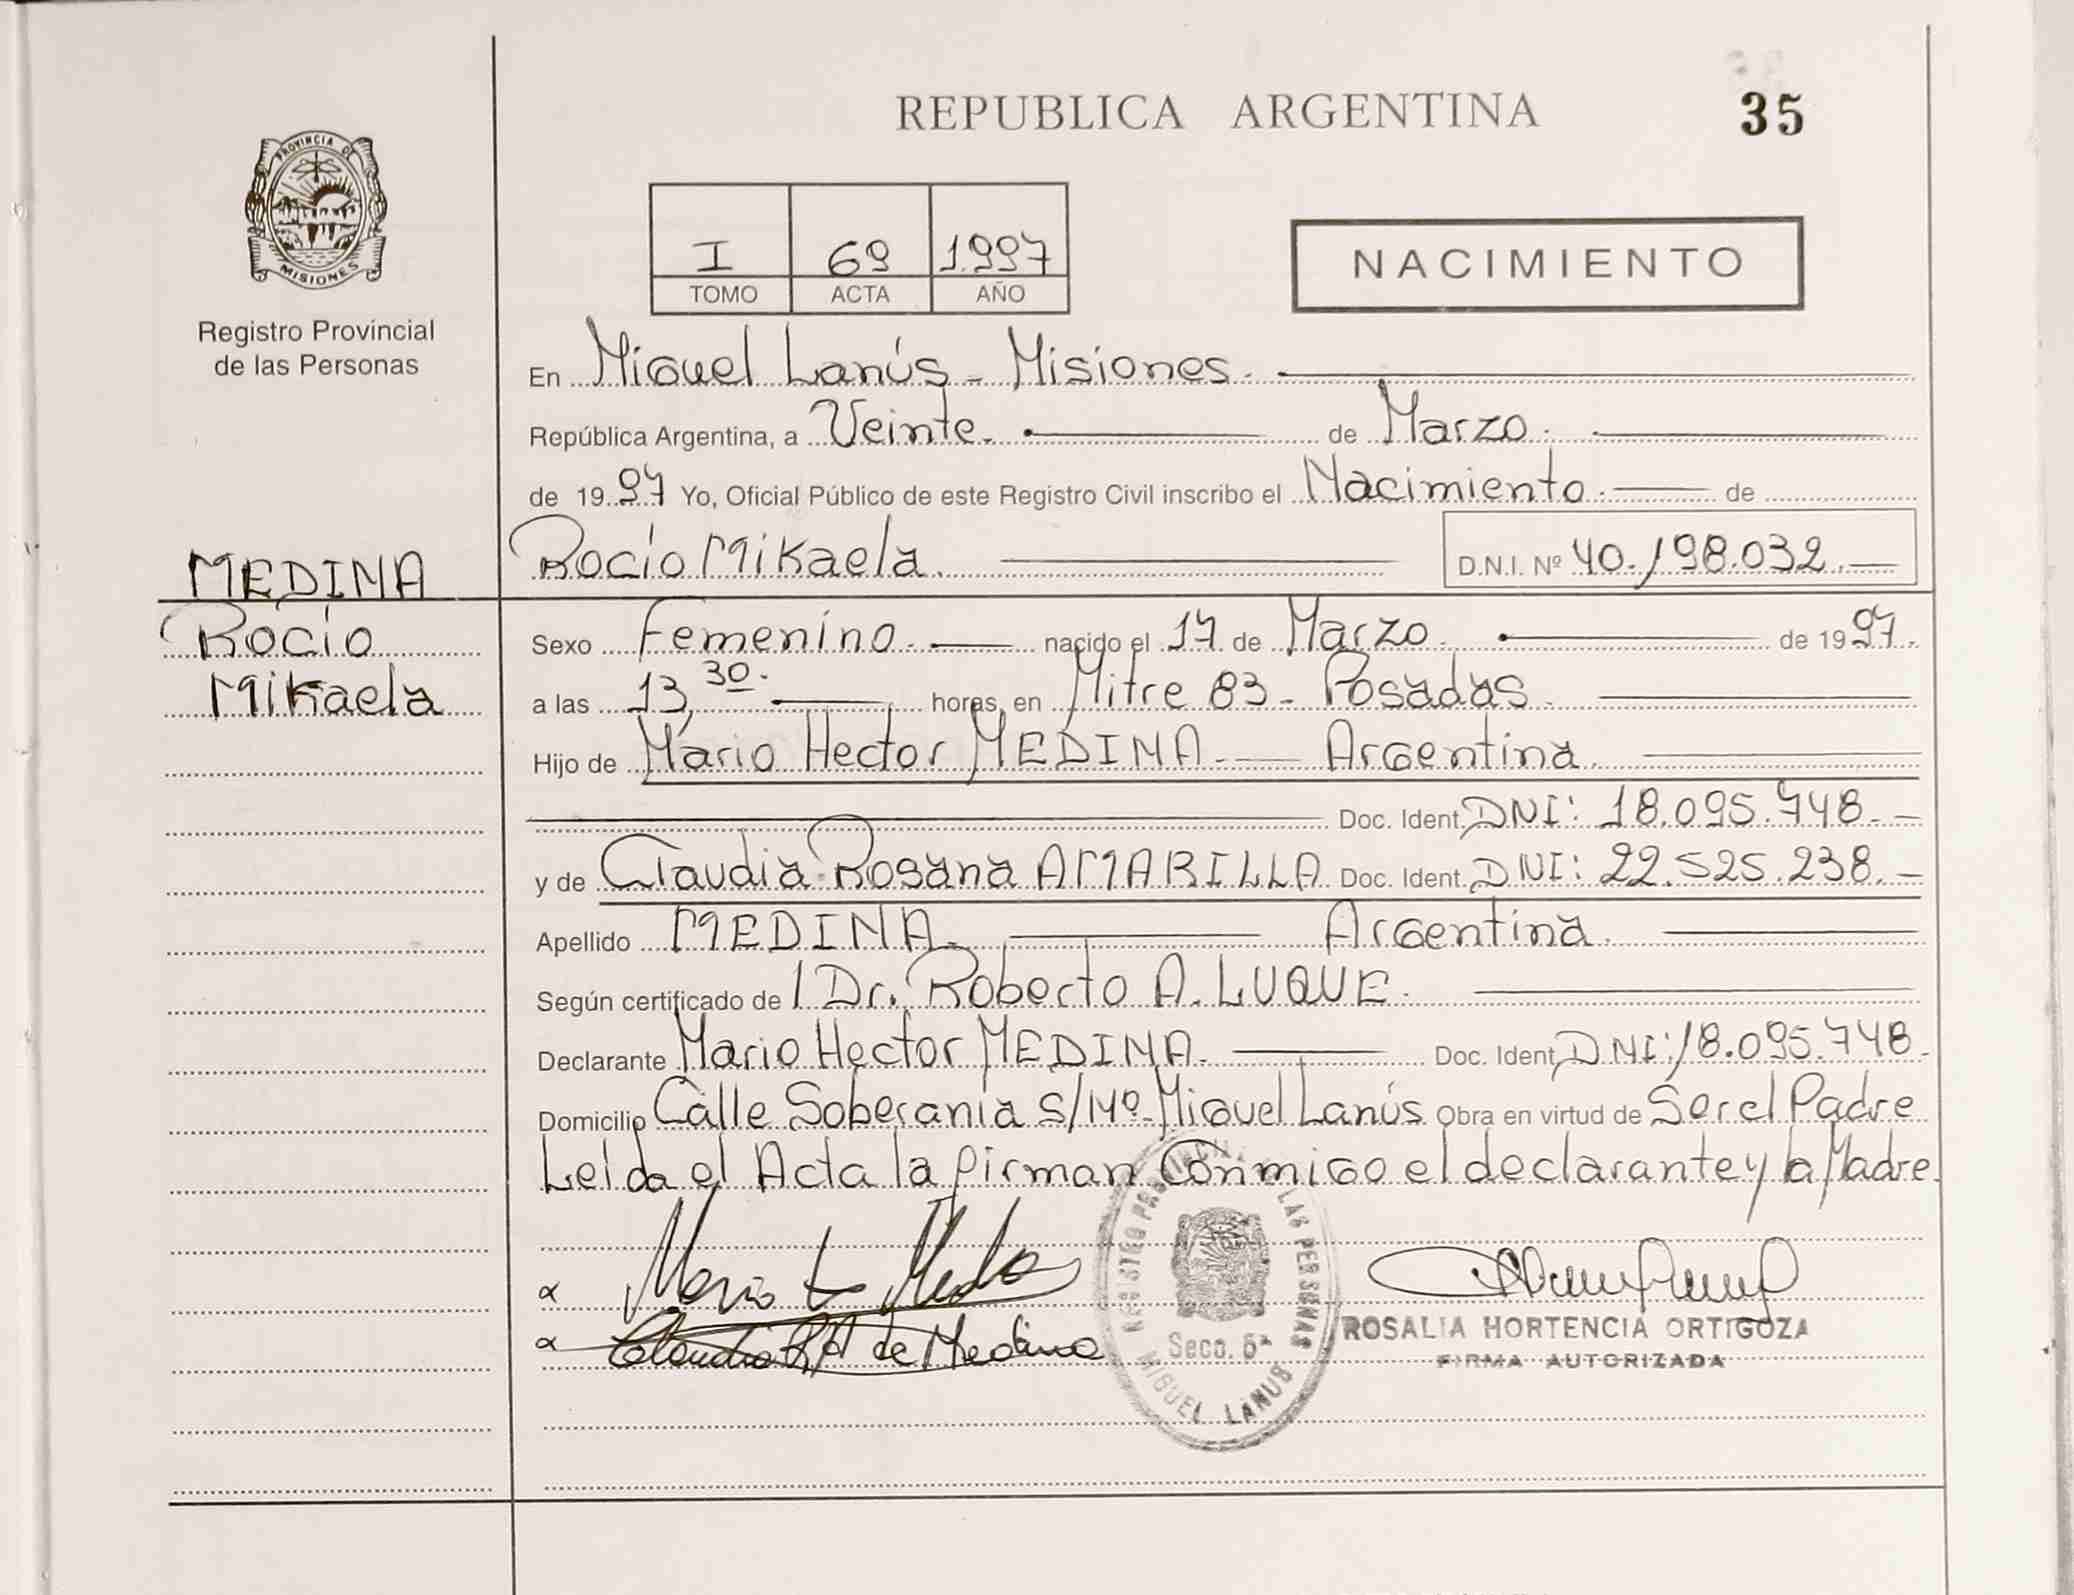 REPUBLICA ARGENTINA
35
PROVINCIA DE
MISIONES
Registro Provincial
de las Personas
I 69 1.997
TOMO ACTA AÑO
NACIMIENTO
En Miguel Lanús - Misiones.
República Argentina, a Veinte. de Marzo.
de 19 97 Yo, Oficial Público de este Registro Civil inscribo el Nacimiento. de
Rocío Mikaela. D.N.I. Nº 40.198.032.
MEDINA
Rocío
Mikaela
Sexo Femenino. nacido el 17 de Marzo. de 19 97.
a las 13,30. horas, en Mitre 83 - Posadas.
Hijo de Mario Hector MEDINA. Argentina.
Doc. Ident. DNI: 18.095.748.-
y de Claudia Rosana AMARILLA Doc. Ident. DNI: 22.525.238.-
Apellido MEDINA. Argentina.
Según certificado de / Dr. Roberto A. LUQUE.
Declarante Mario Hector MEDINA. Doc. Ident. DNI: 18.095.748.
Domicilio Calle Soberanía S/Nº - Miguel Lanús Obra en virtud de Ser el Padre
Leída el Acta la firman Conmigo el declarante y la Madre.
Mario
Claudia R A de Medina
REGISTRO PROVINCIAL LAS PERSONAS
Secc. 6ª
MIGUEL LANUS
ROSALIA HORTENCIA ORTIGOZA
FIRMA AUTORIZADA